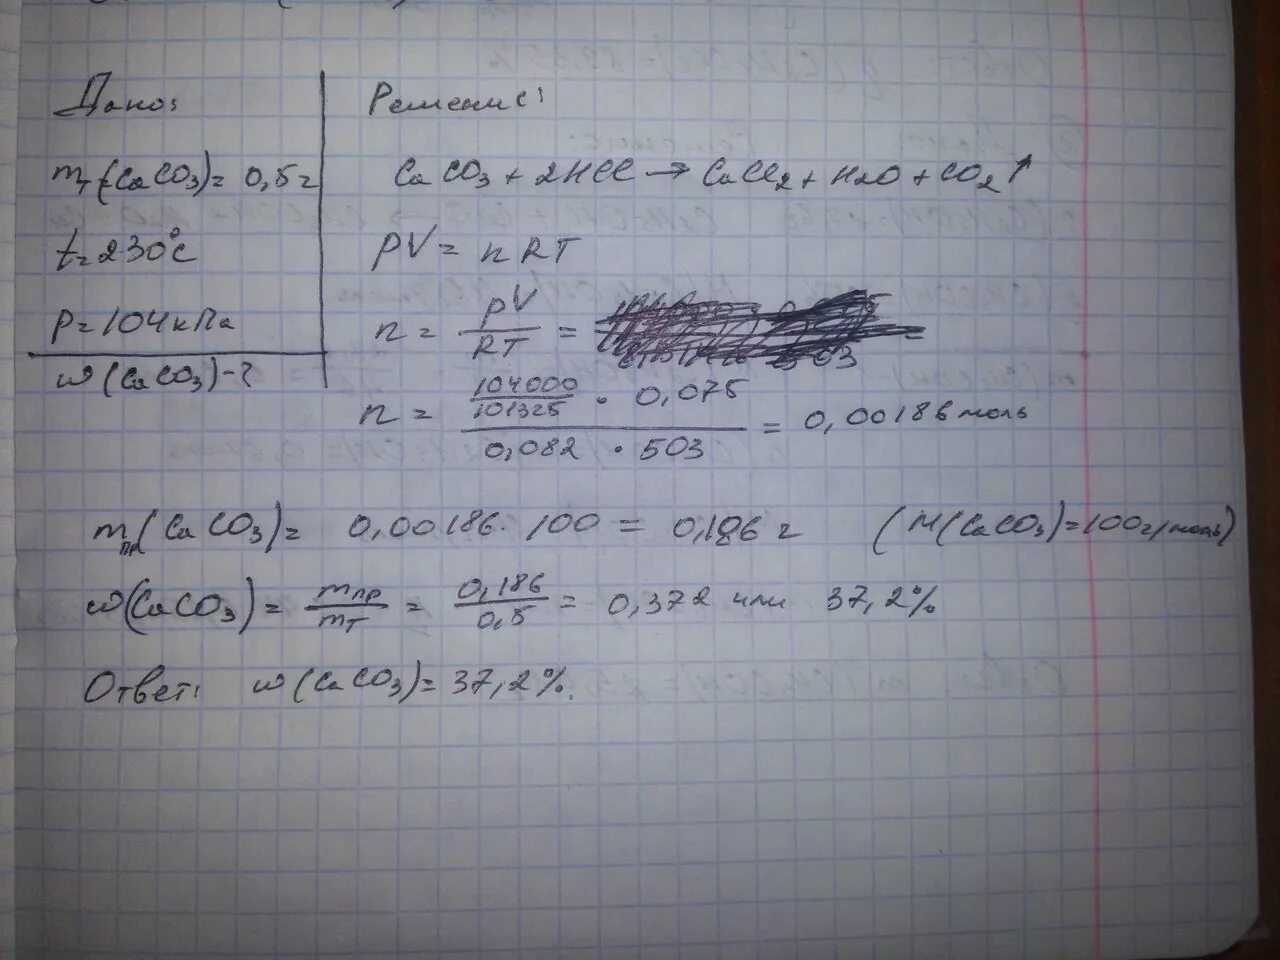 Дано:
m_т(CaCO3)= 0,5 г
t=230°C
P=104кПа
w(CaCO3)-?
Решение:
CaCO3 + 2HCl → CaCl2 + H2O + CO2↑
PV = nRT
n = PV/RT =
n = (104000/101325 · 0,075)/(0,082 · 503) = 0,00186 моль
m_пр(CaCO3)= 0,00186 · 100 = 0,186 г (M(CaCO3)=100г/моль)
w(CaCO3) = m_пр/m_т = 0,186/0,5 = 0,372 или 37,2%
Ответ: w(CaCO3)= 37,2%.